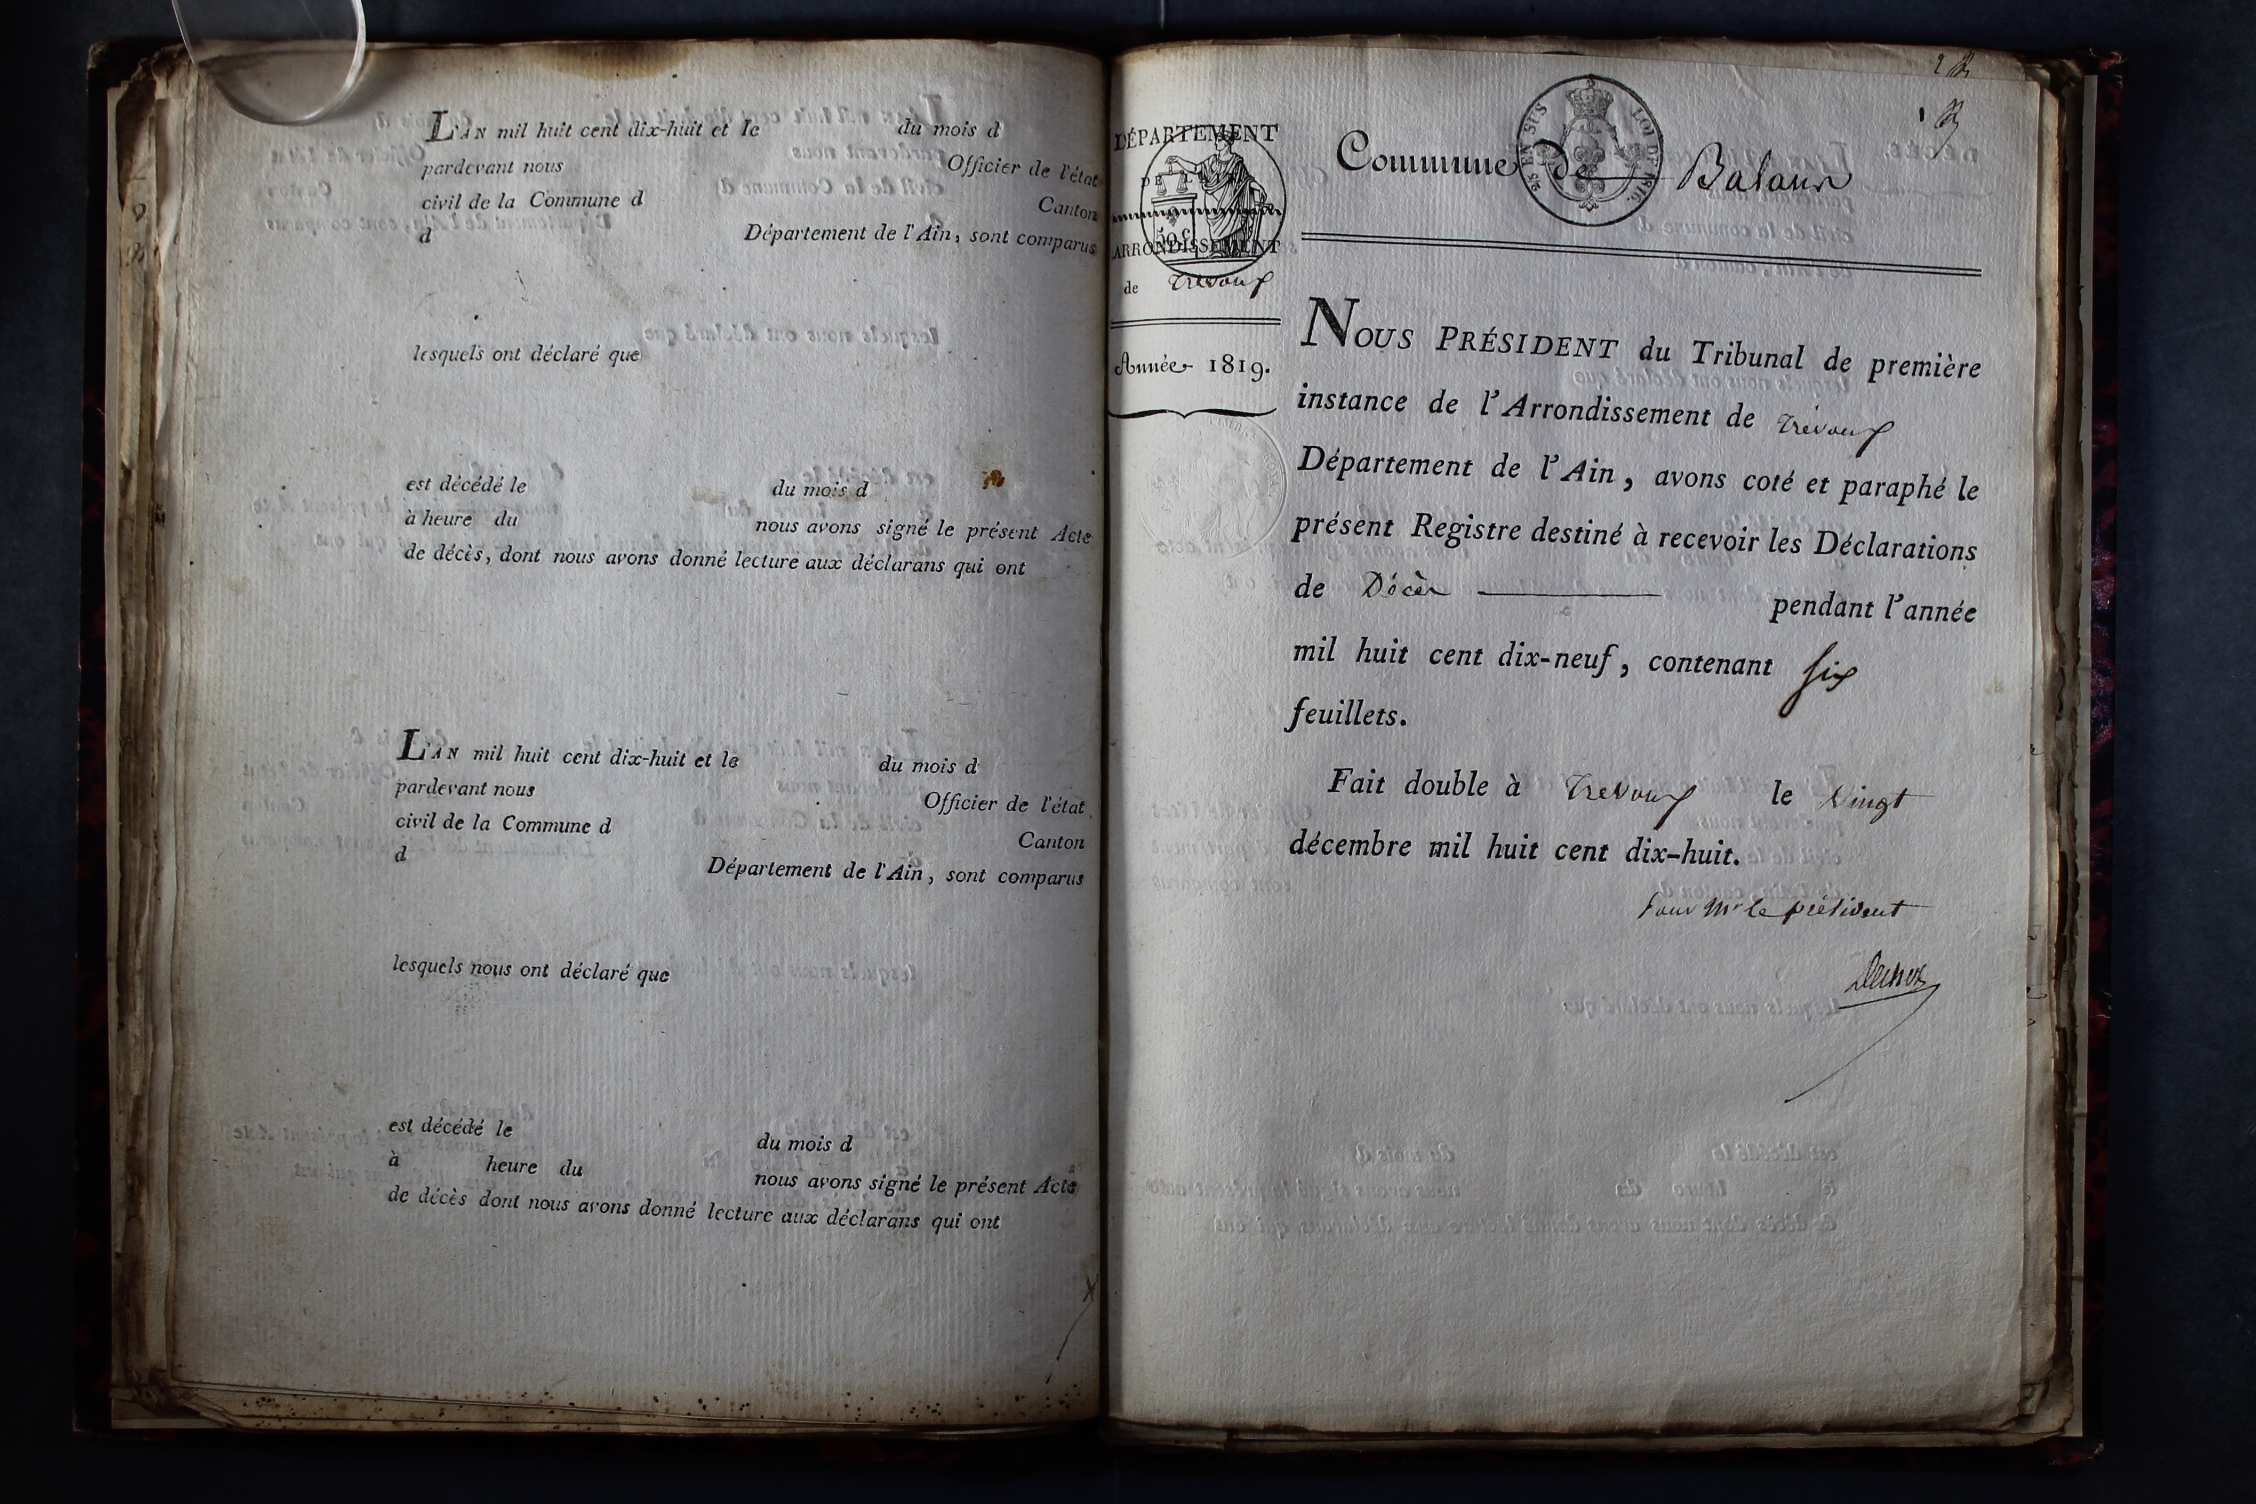 L'AN mil huit cent dix-huit et le du mois d
pardevant nous Officier de l'état
civil de la Commune d Canton
d Département de l'Ain, sont comparus
lesquels ont déclaré que
est décédé le du mois d
à heure du nous avons signé le présent Acte
de décès, dont nous avons donné lecture aux déclarans qui ont
L'AN mil huit cent dix-huit et le du mois d
pardevant nous Officier de l'état
civil de la Commune d Canton
d Département de l'Ain, sont comparus
lesquels nous ont déclaré que
est décédé le du mois d
à heure du nous avons signé le présent Acte
de décès dont nous avons donné lecture aux déclarans qui ont
DÉPARTEMENT
50 c
ARRONDISSEMENT
de Trevoux
Année 1819.
2
1
5/5 EN SUS LOI DE 1816.
Commune de Balan
NOUS PRÉSIDENT du Tribunal de première
instance de l'Arrondissement de Trévoux
Département de l'Ain, avons coté et paraphé le
présent Registre destiné à recevoir les Déclarations
de Décès pendant l'année
mil huit cent dix-neuf, contenant six
feuillets.
Fait double à Trevoux le vingt
décembre mil huit cent dix-huit.
Pour Mr le président